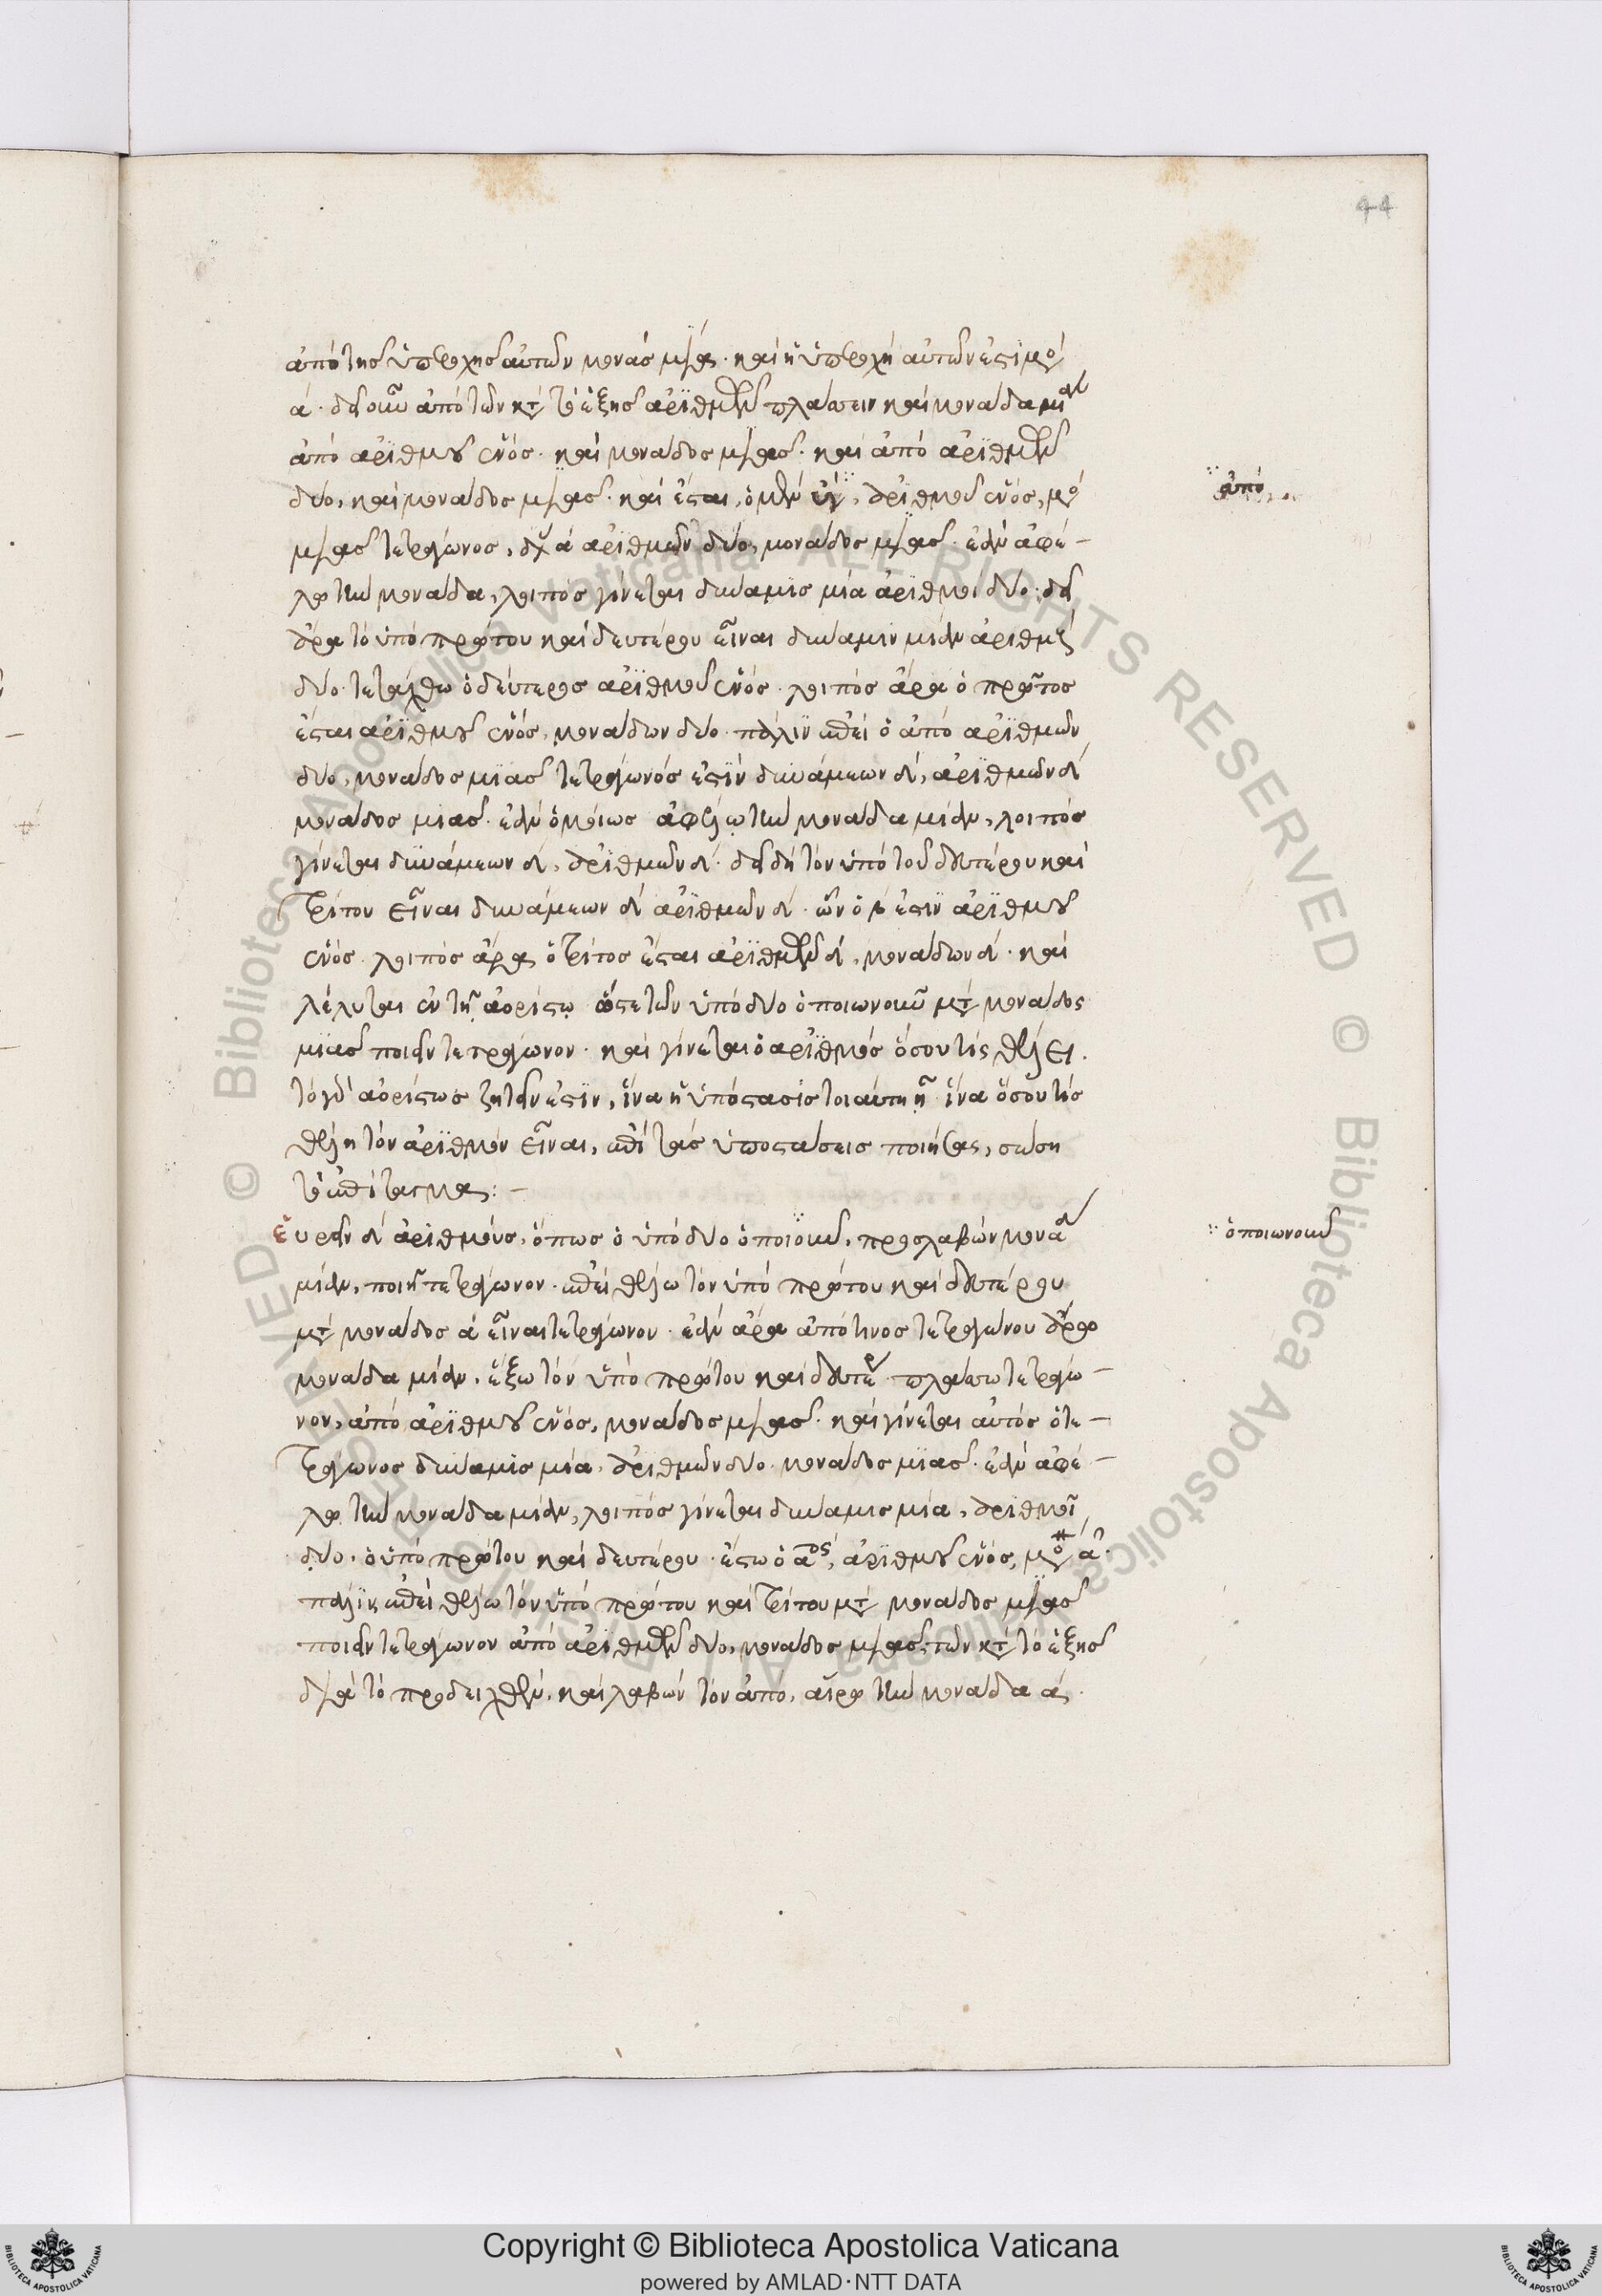 44
ἀπὸ τῆς ὑπεροχῆς αὐτῶν μονὰς μία· καὶ ἡ ὑπεροχὴ αὐτῶν ἐστὶ μο
ά· δεῖ οὖν ἀπὸ τῶν κτ τὸ ἑξῆς ἀριθμῶν πλάσσειν καὶ μονάδα μιᾶς
ἀπὸ ἀριθμοῦ ἑνός· καὶ μονάδος μιᾶς· καὶ ἀπὸ ἀριθμῶν
δύο, καὶ μονάδος μιᾶς· καὶ ἔσται, ὁ μὲν ἀριθμοῦ ἑνός, μο
ἀπό
μιᾶς τετράγωνος, δυ ά ἀριθμῶν δύο, μονάδος μιᾶς· ἐὰν ἀφέ-
λω τὴν μονάδα, λοιπὸς γίνεται δύναμις μία ἀριθμοὶ δύο· δεῖ
ἄρα τὸ ὑπὸ πρώτου καὶ δευτέρου εἶναι δύναμιν μίαν ἀριθμ
δύο· τετάχθω ὁ δεύτερος ἀριθμοῦ ἑνός· λοιπὸς ἄρα ὁ πρῶτος
ἔσται ἀριθμοῦ ἑνός, μονάδων δύο· πάλιν ἐπεὶ ὁ ἀπὸ ἀριθμῶν
δύο, μονάδος μιᾶς τετράγωνός ἐστιν δυνάμεων δ, ἀριθμῶν δ
μονάδος μιᾶς· ἐὰν ὁμοίως ἀφέλω τὴν μονάδα μίαν, λοιπὸς
γίνεται δυνάμεων δ, ἀριθμῶν δ· δεῖ δὴ τὸν ὑπὸ τοῦ δευτέρου καὶ
τρίτου εἶναι δυνάμεων δ ἀριθμῶν δ· ὧν ὁ β ἐστὶν ἀριθμοῦ
ἑνός· λοιπὸς ἄρα ὁ τρίτος ἔσται ἀριθμῶν δ, μονάδων δ· καὶ
λέλυται ἐν τῇ ἀορίστῳ ὥστε τῶν ὑπὸ δύο ὁποιωνοῦν μτ μονάδος
μιᾶς ποιεῖν τετράγωνον· καὶ γίνεται ὁ ἀριθμὸς ὅσου τίς θέλει·
τὸ γὰρ ἀορίστως ζητεῖν ἐστὶν, ἵνα ἡ ὑπόστασις τοιαύτη ᾖ ἵνα ὅσου τίς
θέλῃ τὸν ἀριθμὸν εἶναι, ἐπὶ τὰς ὑποστάσεις ποιήσας, σώσῃ
τὸ ἐπίταγμα:-
Εὑρεῖν δ ἀριθμούς, ὅπως ὁ ὑπὸ δύο ὁποιοῦν, προσλαβὼν μονάδα
ὁποιωνοῦν
μίαν, ποιῇ τετράγωνον· ἐπεὶ θέλω τὸν ὑπὸ πρώτου καὶ δευτέρου
μτ μονάδος ά εἶναι τετράγωνον· ἐὰν ἄρα ἀπό τινος τετραγώνου ἄρω
μονάδα μίαν, ἕξω τὸν ὑπὸ πρώτου καὶ δευτέρ· πλάσσω τετράγω-
νον, ἀπὸ ἀριθμοῦ ἑνός, μονάδος μιᾶς· καὶ γίνεται αὐτὸς ὁ τε-
τράγωνος δύναμις μία, ἀριθμῶν δύο· μονάδος μιᾶς· ἐὰν ἀφέ-
λω τὴν μονάδα μίαν, λοιπὸς γίνεται δύναμις μία, ἀριθμοὶ
δύο, ὁ ὑπὸ πρώτου καὶ δευτέρου· ἔστω ὁ αος, ἀριθμοῦ ἑνός, μο ά·
πάλιν ἐπεὶ θέλω τὸν ὑπὸ πρώτου καὶ τρίτου μτ μονάδος μιᾶς
ποιεῖν τετράγωνον ἀπὸ ἀριθμῶν δύο, μονάδος μιᾶς, τῶν κτ τὸ ἑξῆς
διὰ τὸ προδειχθέν, καὶ λαβὼν τὸν ἀπό, αἴρω τὴν μονάδα ά
Copyright © Biblioteca Apostolica Vaticana
powered by AMLAD·NTT DATA